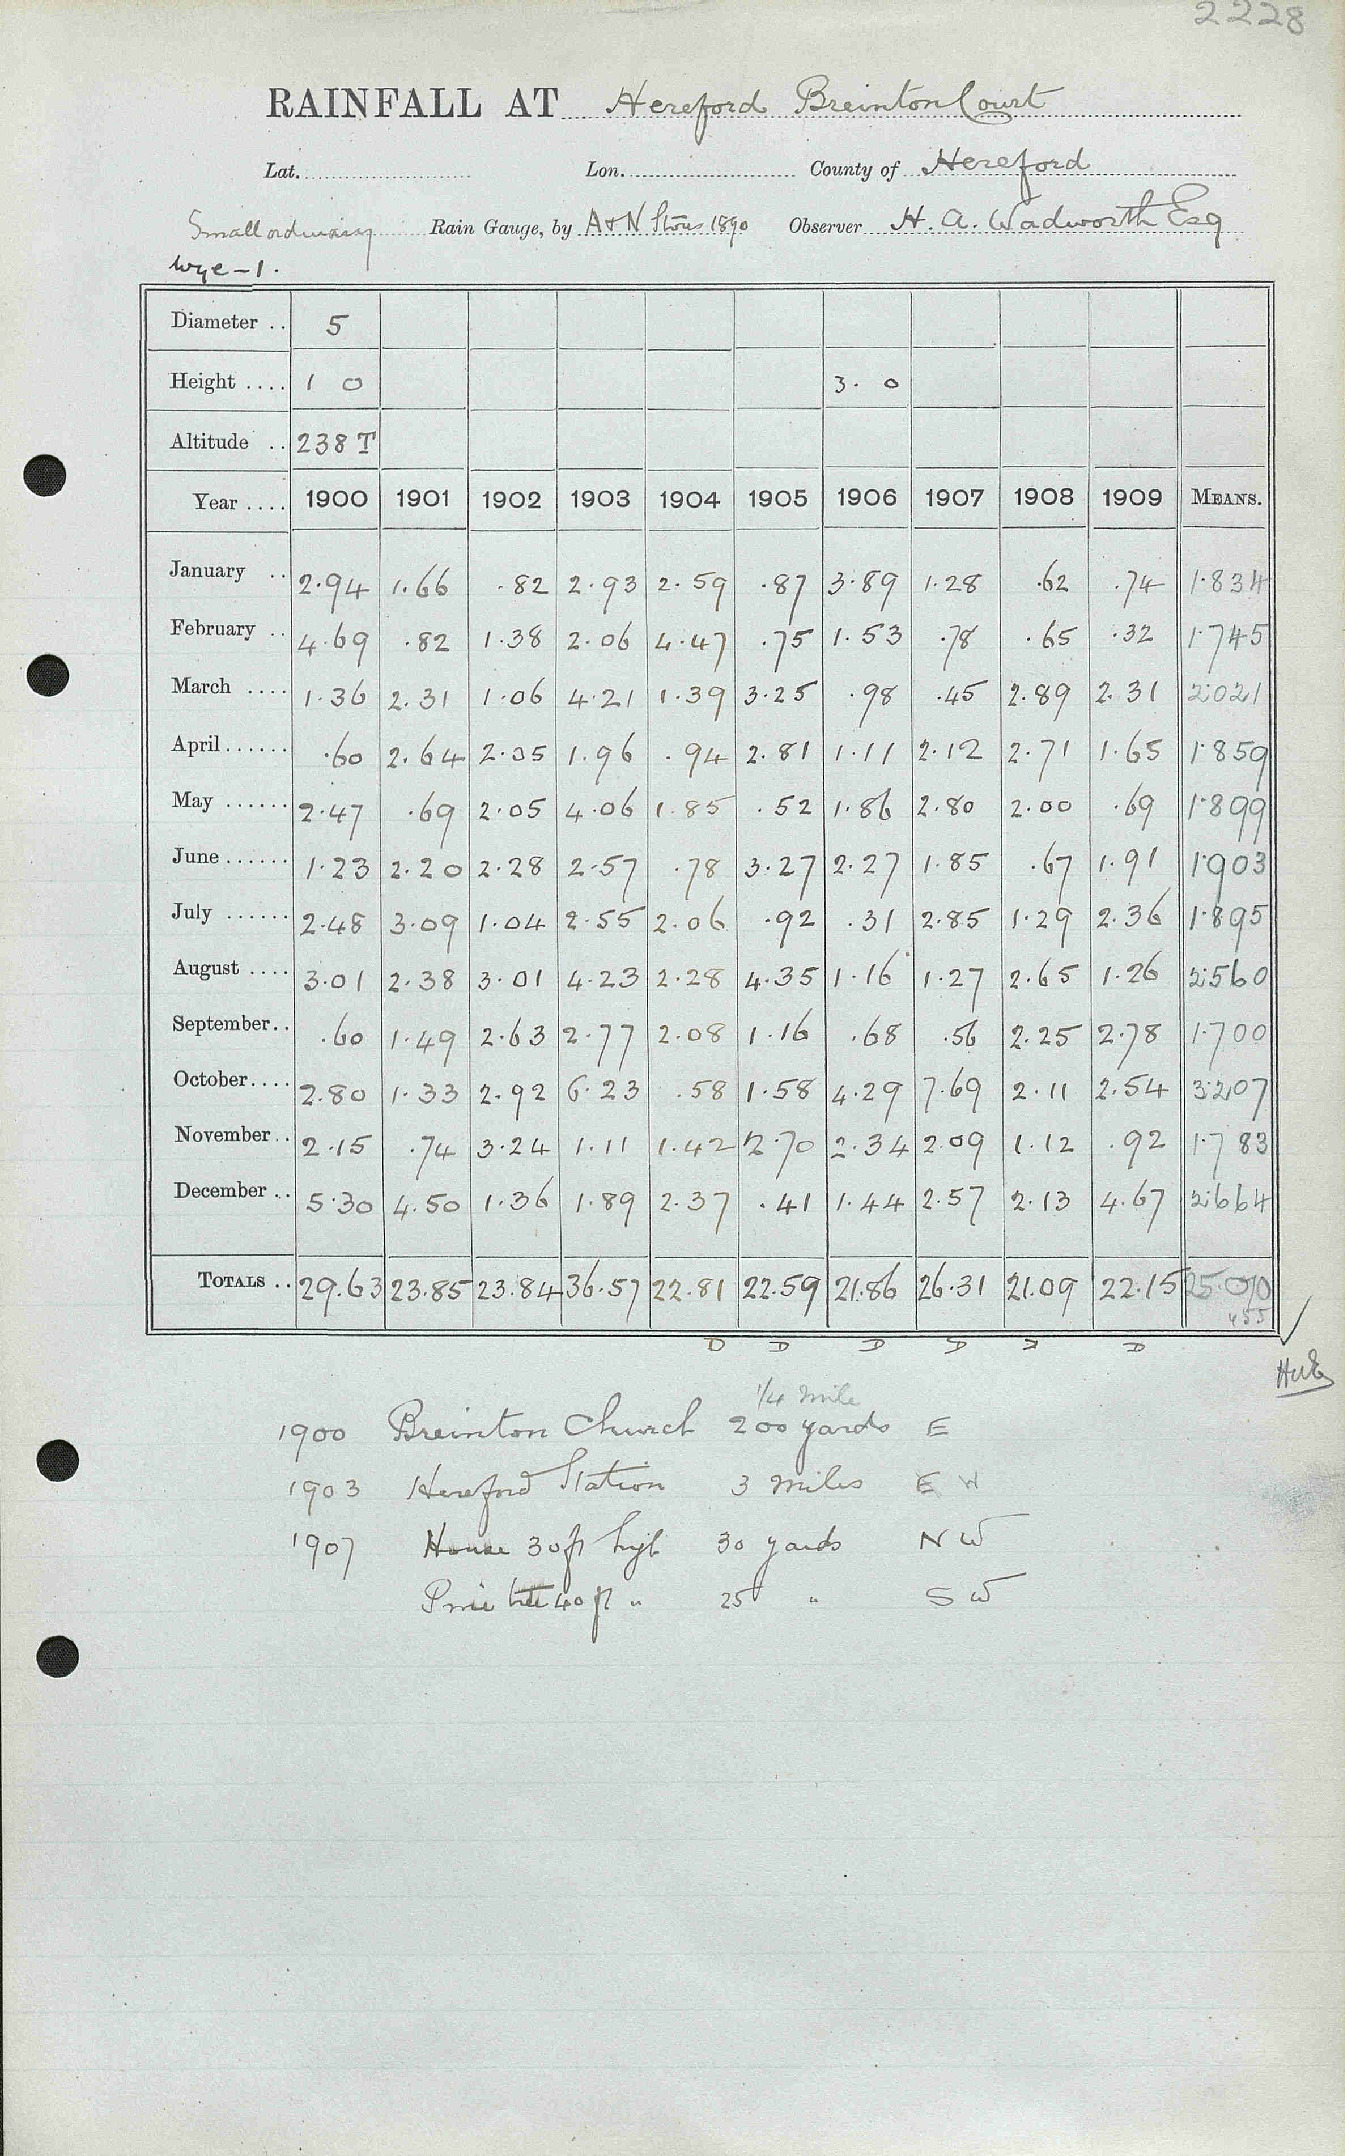 2228
RAINFALL AT Hereford Breinton Court
Lat. Lon. County of Hereford
Small ordinary Rain Gauge, by A & N Stores 1890 Observer H. A. Wadworth Esq
Wye - 1.
Diameter .. 5
Height .... 1 0 3. 0
Altitude .. 238 T
Year .... 1900 1901 1902 1903 1904 1905 1906 1907 1908 1909 MEANS.
January .. 2.94 1.66 .82 2.93 2.59 .87 3.89 1.28 .62 .74 1.834
February .. 4.69 .82 1.38 2.06 4.47 .75 1.53 .78 .65 .32 1.745
March .... 1.36 2.31 1.06 4.21 1.39 3.25 .98 .45 2.89 2.31 2.021
April ...... .60 2.64 2.05 1.96 .94 2.81 1.11 2.12 2.71 1.65 1.859
May ...... 2.47 .69 2.05 4.06 1.85 .52 1.86 2.80 2.00 .69 1.899
June ...... 1.23 2.20 2.28 2.57 .78 3.27 2.27 1.85 .67 1.91 1.903
July ...... 2.48 3.09 1.04 2.55 2.06 .92 .31 2.85 1.29 2.36 1.895
August .... 3.01 2.38 3.01 4.23 2.28 4.35 1.16 1.27 2.65 1.26 2.560
September.. .60 1.49 2.63 2.77 2.08 1.16 .68 .56 2.25 2.78 1.700
October.... 2.80 1.33 2.92 6.23 .58 1.58 4.29 7.69 2.11 2.54 3.207
November.. 2.15 .74 3.24 1.11 1.42 2.70 2.34 2.09 1.12 .92 1.783
December .. 5.30 4.50 1.36 1.89 2.37 .41 1.44 2.57 2.13 4.67 2.664
TOTALS .. 29.63 23.85 23.84 36.57 22.81 22.59 21.86 26.31 21.09 22.15 25.070
D D D D D D
1/4 mile
1900 Breinton Church 200 yards E
1903 Hereford Station 3 miles E
1907 House 30 ft high 30 yards N W
Pine tree 40 ft " 25 " S W